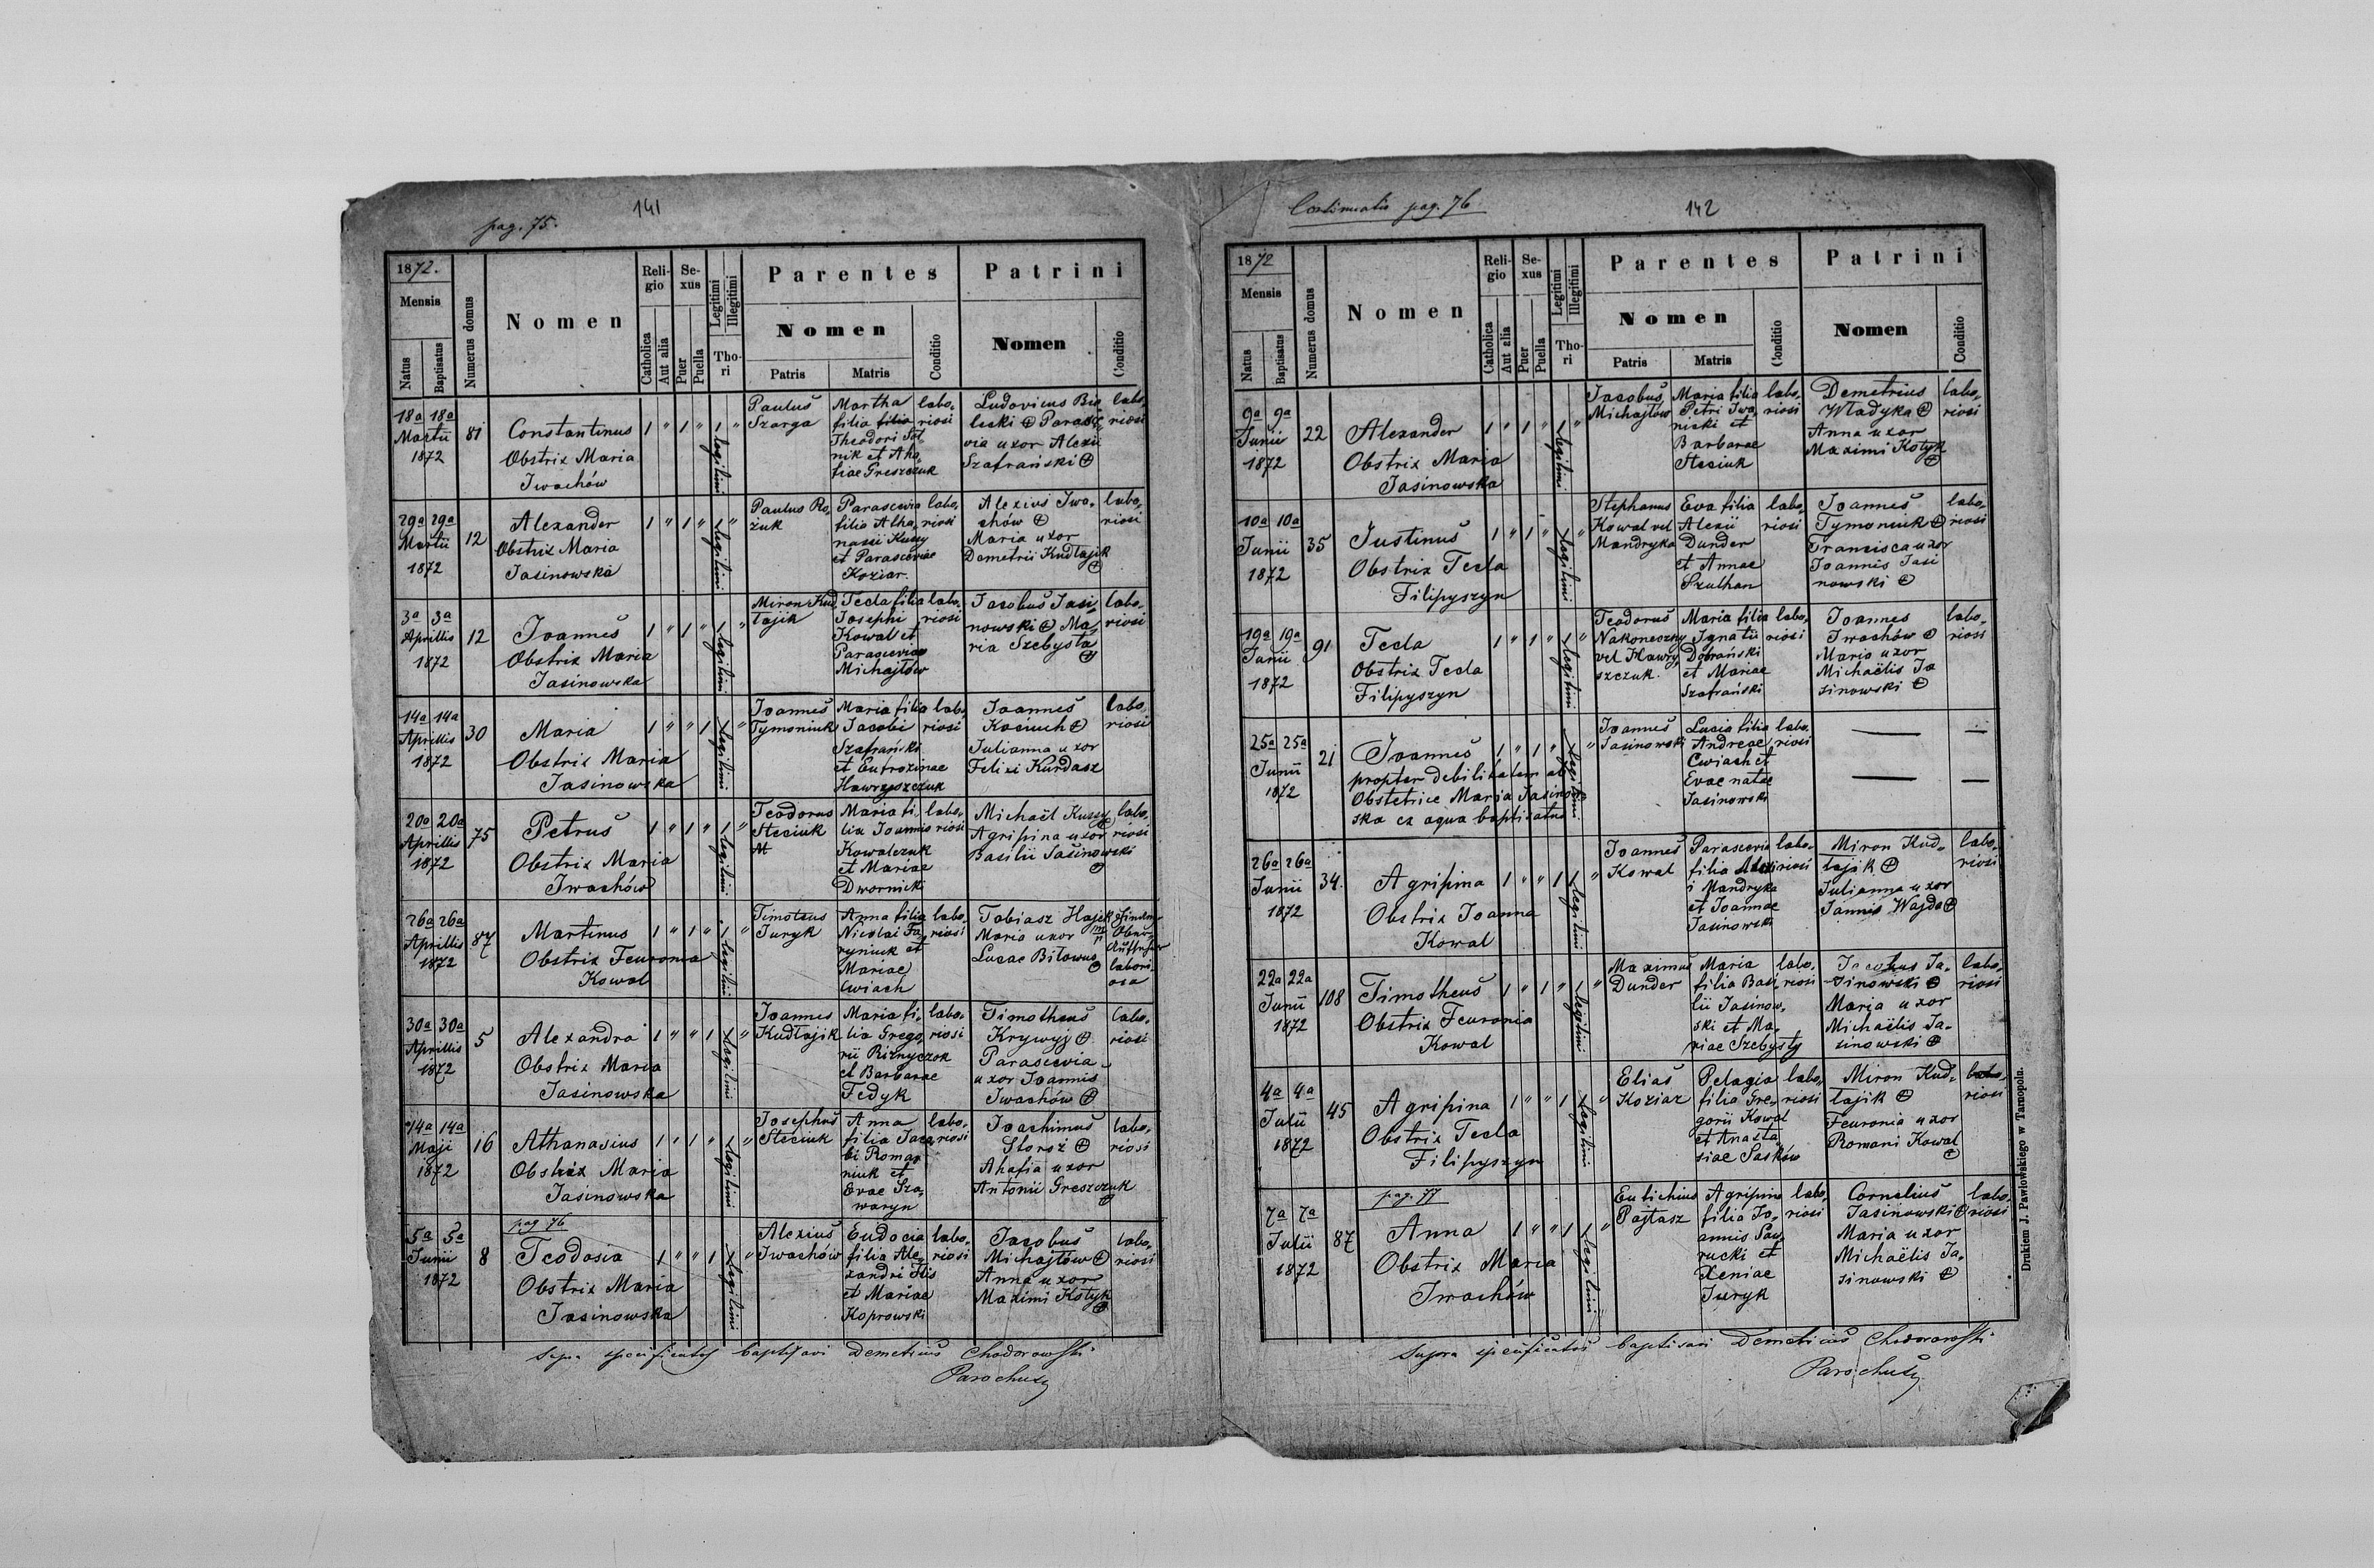 pag. 75.
141
1872.
Mensis
Natus
Baptisatus
Numerus domus
Nomen
Religio
Catholica
Aut alia
Sexus
Puer
Puella
Legitimi
Illegitimi
Thori
Parentes
Nomen
Patris
Matris
Conditio
Patrini
Nomen
Conditio
18a 18a
Martii
1872
81
Constantinus
Obstrix Maria
Iwachów
1 " 1 " 1 "
Legitimi
Paulus
Szarga
Martha
filia filia
Theodori Sol
nik et Aha,
tiae Greszczuk
labo,
riosi
Ludovicus Bia
leski ⊕ Parasce
via uxor Alexii
Szafrański ⊕
labo,
riosi
29a 29a
Martii
1872
12
Alexander
Obstrix Maria
Jasinowska
1 " 1 " 1 "
Legitimi
Paulus Ko,
zuk
Parascevia
filia Atha,
nasii Kussy
et Parasceviae
Koziar.
labo,
riosi
Alexius Iwa,
chów ⊕
Maria uxor
Demetrii Kudłajik
⊕
labo,
riosi
3a 3a
Aprillis
1872
12
Joannes
Obstrix Maria
Jasinowska
1 " 1 " 1 "
Legitimi
Miron Kud,
łajik
Tecla filia
Josephi
Kowal et
Parasceviae
Michajłow
labo,
riosi
Jacobus Jasi
nowski ⊕ Ma,
ria Szebysta
⊕
labo,
riosi
14a 14a
Aprillis
1872
30
Maria
Obstrix Maria
Jasinowska
1 " " 1 1 "
Legitimi
Joannes
Tymoniuk
Maria filia
Jacobi
Szafrański
et Eufrozinae
Hawryszczuk
labo,
riosi
Joannes
Kociuch ⊕
Julianna uxor
Felixi Kurdasz
labo,
riosi
20a 20a
Aprillis
1872
75
Petrus
Obstrix Maria
Iwachów
1 " 1 " 1 "
Legitimi
Teodorus
Steciuk
Maria fi,
lia Joannis
Kowalczuk
et Mariae
Dwornicki
labo,
riosi
Michaël Kussy
⊕
Agripina uxor
Basilii Jasinowski
⊕
labo,
riosi
26a 26a
Aprillis
1872
87
Martinus
Obstrix Feuronia
Kowal
1 " 1 " 1 "
Legitimi
Timoteus
Juryk
Anna filia
Nicolai Ja,
ryniuk et
Mariae
Cwiach
labo,
riosi
Tobiasz Hajek
Maria uxor
Lucae Bilowus
⊕
labori
osa
30a 30a
Aprillis
1872
5
Alexandra
Obstrix Maria
Jasinowska
1 " " 1 1 "
Legitimi
Joannes
Kudłajik
Maria fi,
lia Grego,
rii Riznyczok
et Barbarae
Fedyk
labo,
riosi
Timotheus
Krywyj ⊕
Parascevia
uxor Joannis
Iwachów ⊕
labo,
riosi
14a 14a
Maji
1872
16
Athanasius
Obstrix Maria
Jasinowska
1 " 1 " 1 "
Legitimi
Josephus
Steciuk
Anna
filia Jaco,
bi Roma,
niuk et
Evae Sza,
waryn
labo,
riosi
Joachimus
Storoż ⊕
Ahafia uxor
Antonii Greszczuk
⊕
labo,
riosi
pag 76
5a 5a
Junii
1872
8
Teodosia
Obstrix Maria
Jasinowska
1 " " 1 1 "
Legitimi
Alexius
Iwachów
Eudocia
filia Ale,
xandri Ilis
et Mariae
Koprowski
labo,
riosi
Jacobus
Michajłów ⊕
Anna uxor
Maximi Kotyk
⊕
labo,
riosi
Supra specificatos baptisavi Demetrius Chodorowski
Parochus
Continuatio pag. 76
142
1872
Mensis
Natus
Baptisatus
Numerus domus
Nomen
Religio
Catholica
Aut alia
Sexus
Puer
Puella
Legitimi
Illegitimi
Thori
Parentes
Nomen
Patris
Matris
Conditio
Patrini
Nomen
Conditio
9a 9a
Junii
1872
22
Alexander
Obstrix Maria
Jasinowska
1 " 1 " 1 "
Legitimi
Jacobus
Michajłów
Maria filia
Petri Iwa,
nicki et
Barbarae
Steciuk
labo,
riosi
Demetrius
Władyka ⊕
Anna uxor
Maximi Kotyk
⊕
labo,
riosi
10a 10a
Junii
1872
35
Justinus
Obstrix Tecla
Filipyszyn
1 " 1 " 1 "
Legitimi
Stephanus
Kowal vel
Mandryka
Eva filia
Alexii
Dunder
et Annae
Szulhan
labo,
riosi
Joannes
Tymoniuk ⊕
Francisca uxor
Joannis Jasi
nowski ⊕
labo,
riosi
19a 19a
Junii
1872
91
Tecla
Obstrix Tecla
Filipyszyn
1 " 1 " 1 "
Legitimi
Teodorus
Nakoneczny
vel Hawry
szczuk.
Maria filia
Ignatii
Dobrański
et Mariae
Szafrański
labo,
riosi
Joannes
Iwachów ⊕
Maria uxor
Michaëlis Ja
sinowski ⊕
labo,
riosi
25a 25a
Junii
1872
21
Joannes
propter debilitatem ab
Obstetrice Maria Jasinow
ska ex aqua baptisatus
1 " 1 " 1 "
Legitimi
Joannes
Jasinowski
Lucia filia
Andreae
Cwiach et
Evae natae
Jasinowski
labo,
riosi
— —
— —
26a 26a
Junii
1872
34.
Agripina
Obstrix Joanna
Kowal
1 " " 1 1 "
Legitimi
Joannes
Kowal
Parascevia
filia Alexi
i Mandryka
et Joannae
Jasinowski
labo,
riosi
Miron Kud,
łajik ⊕
Julianna uxor
Joannis Wajda ⊕
labo,
riosi
22a 22a
Junii
1872
108
Timotheus
Obstrix Feuronia
Kowal
1 " 1 " 1 "
Legitimi
Maximus
Dunder
Maria
filia Basi,
lii Jasinow,
ski et Ma,
riae Szebysty
labo,
riosi
Jacobus Ja,
sinowski ⊕
Maria uxor
Michaëlis Ja,
sinowski ⊕
labo,
riosi
4a 4a
Julii
1872
45
Agripina
Obstrix Tecla
Filipyszyn
1 " " 1 1 "
Legitimi
Elias
Koziar
Pelagia
filia Gre,
gorii Kowal
et Anasta,
siae Saśków
labo,
riosi
Miron Kud,
łajik ⊕
Feuronia uxor
Romani Kowal
⊕
labo,
riosi
pag. 77
7a 7a
Julii
1872
87
Anna
Obstrix Maria
Iwachów
1 " " 1 1 "
Legitimi
Eutichius
Pajtasz
Agripina
filia Jo,
annis Sau,
rucki et
Xeniae
Juryk
labo,
riosi
Cornelius
Jasinowski ⊕
Maria uxor
Michaëlis Ja,
sinowski ⊕
labo,
riosi
Supra specificatos baptisavi Demetrius Chodorowski
Parochus
Drukiem J. Pawłowskiego w Tarnopolu.